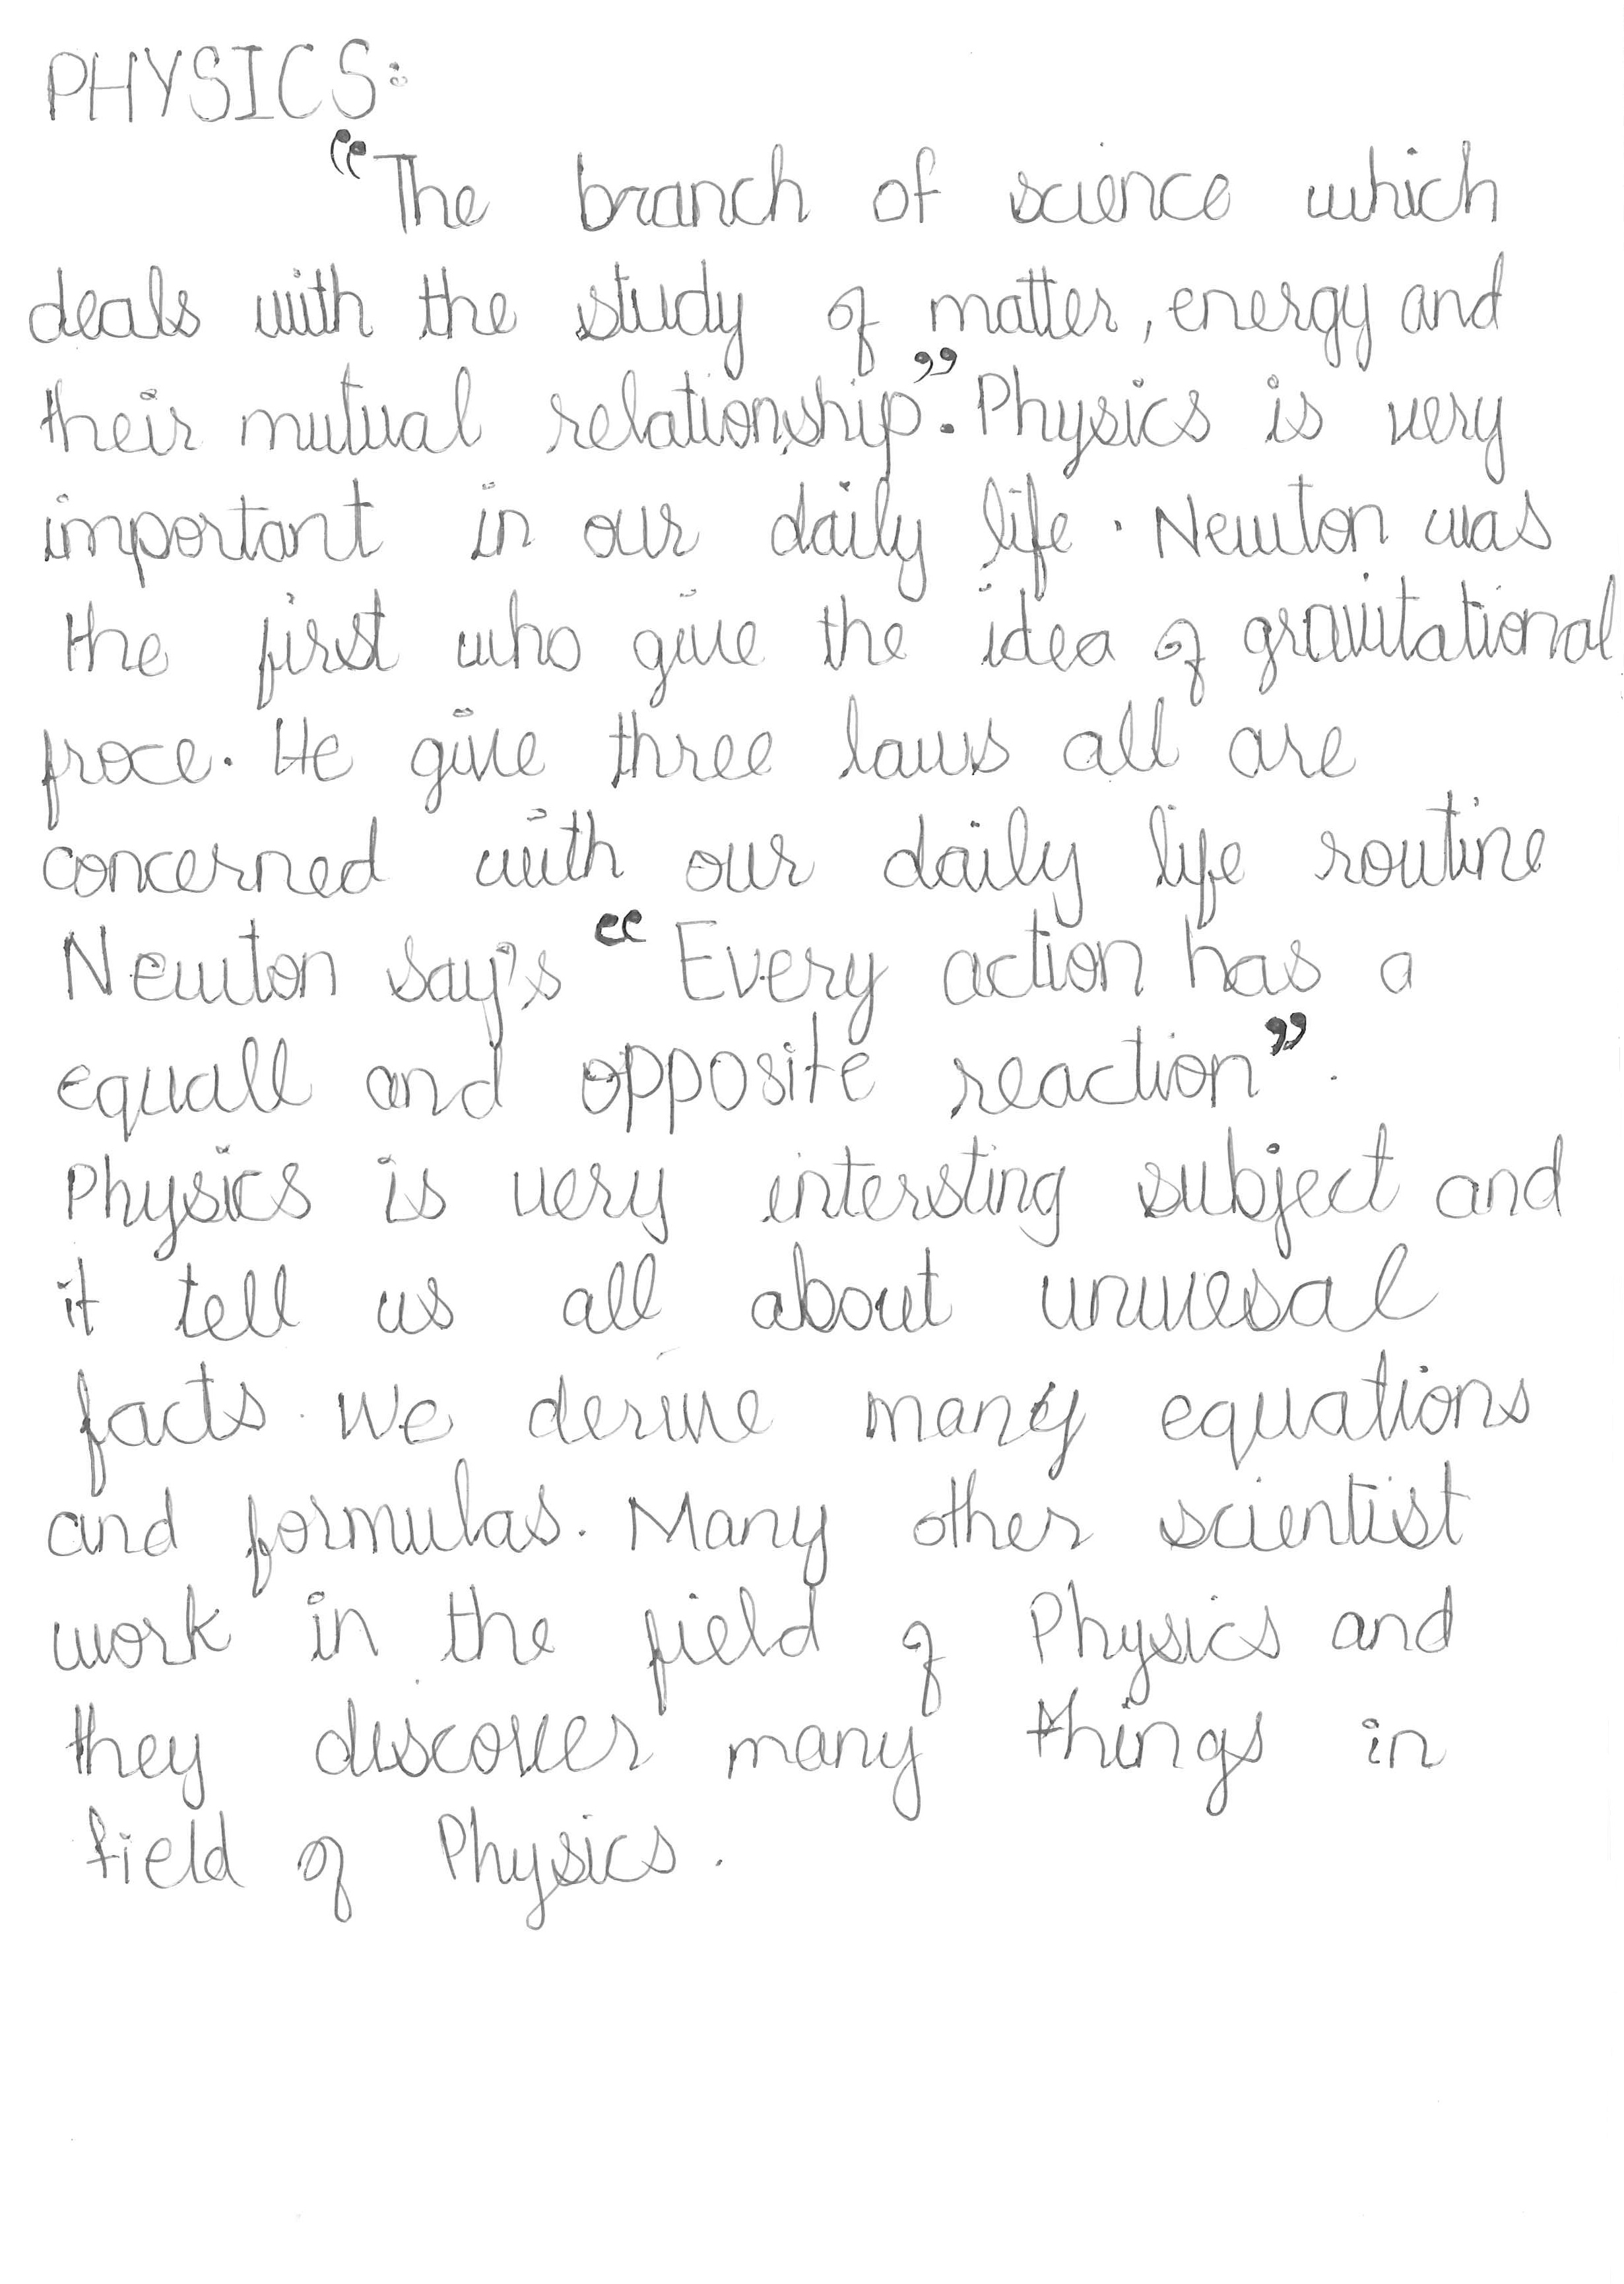 PHYSICS:
“The branch of science which
deals with the study of matter, energy and
their mutual relationship”. Physics is very
important in our daily life. Newton was
the first who give the idea of gravitational
froce. He give three laws all are
concerned with our daily life routine
Newton say's “Every action has a
equall and opposite reaction”.
Physics is very intersting subject and
it tell us all about univesal
facts. We derive many equations
and formulas. Many other scientist
work in the field of Physics and
they discover many things in
field of Physics.